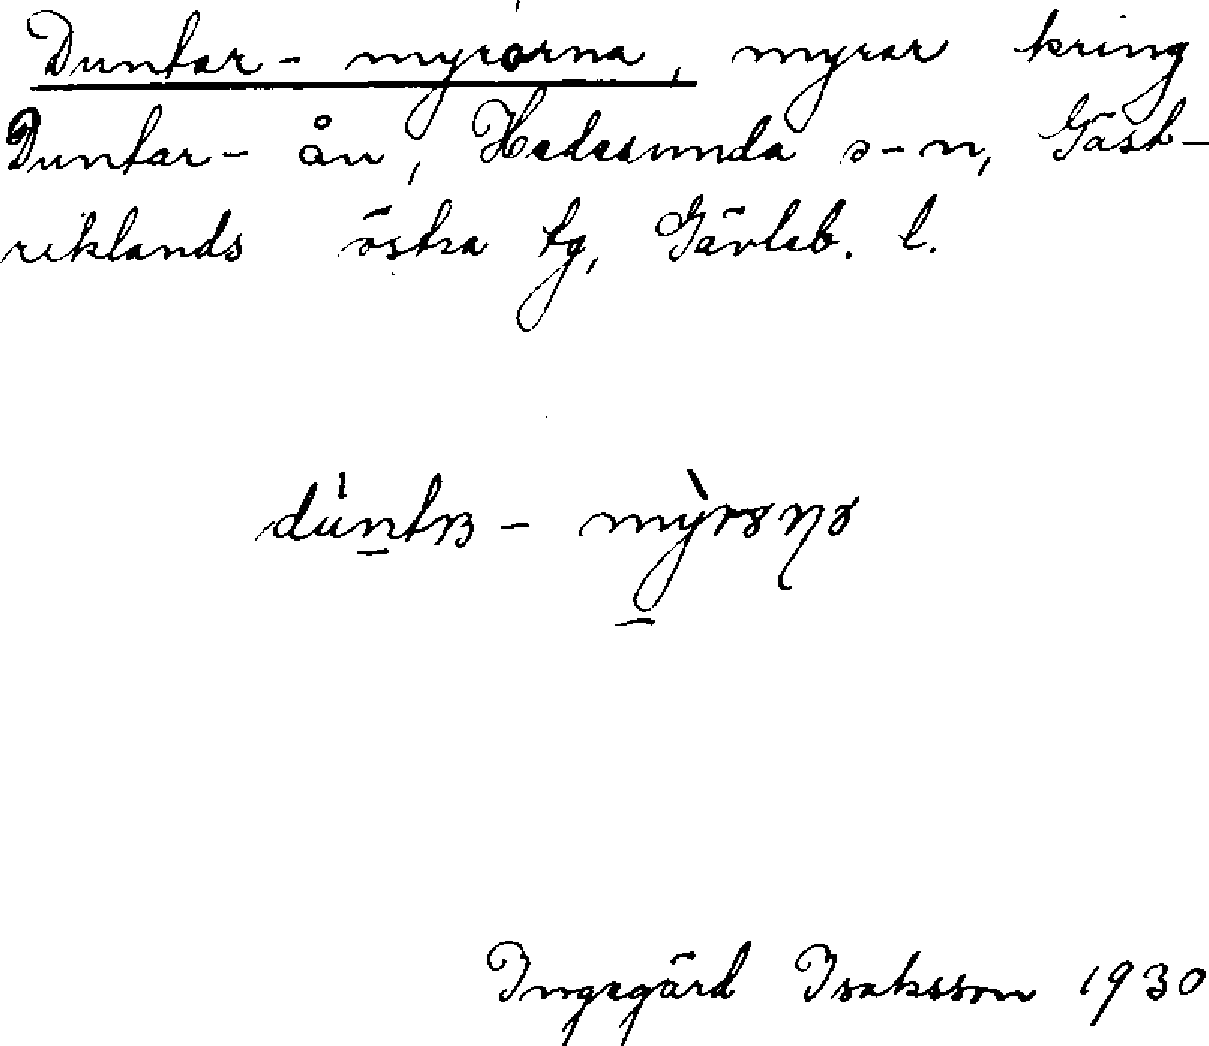 Duntar-myrorna, myrar kring
Duntar-ån, Hedesunda s-n, Gäst-
riklands östra tg, Gävleb. l.
Ingegärd Isaksson 1930